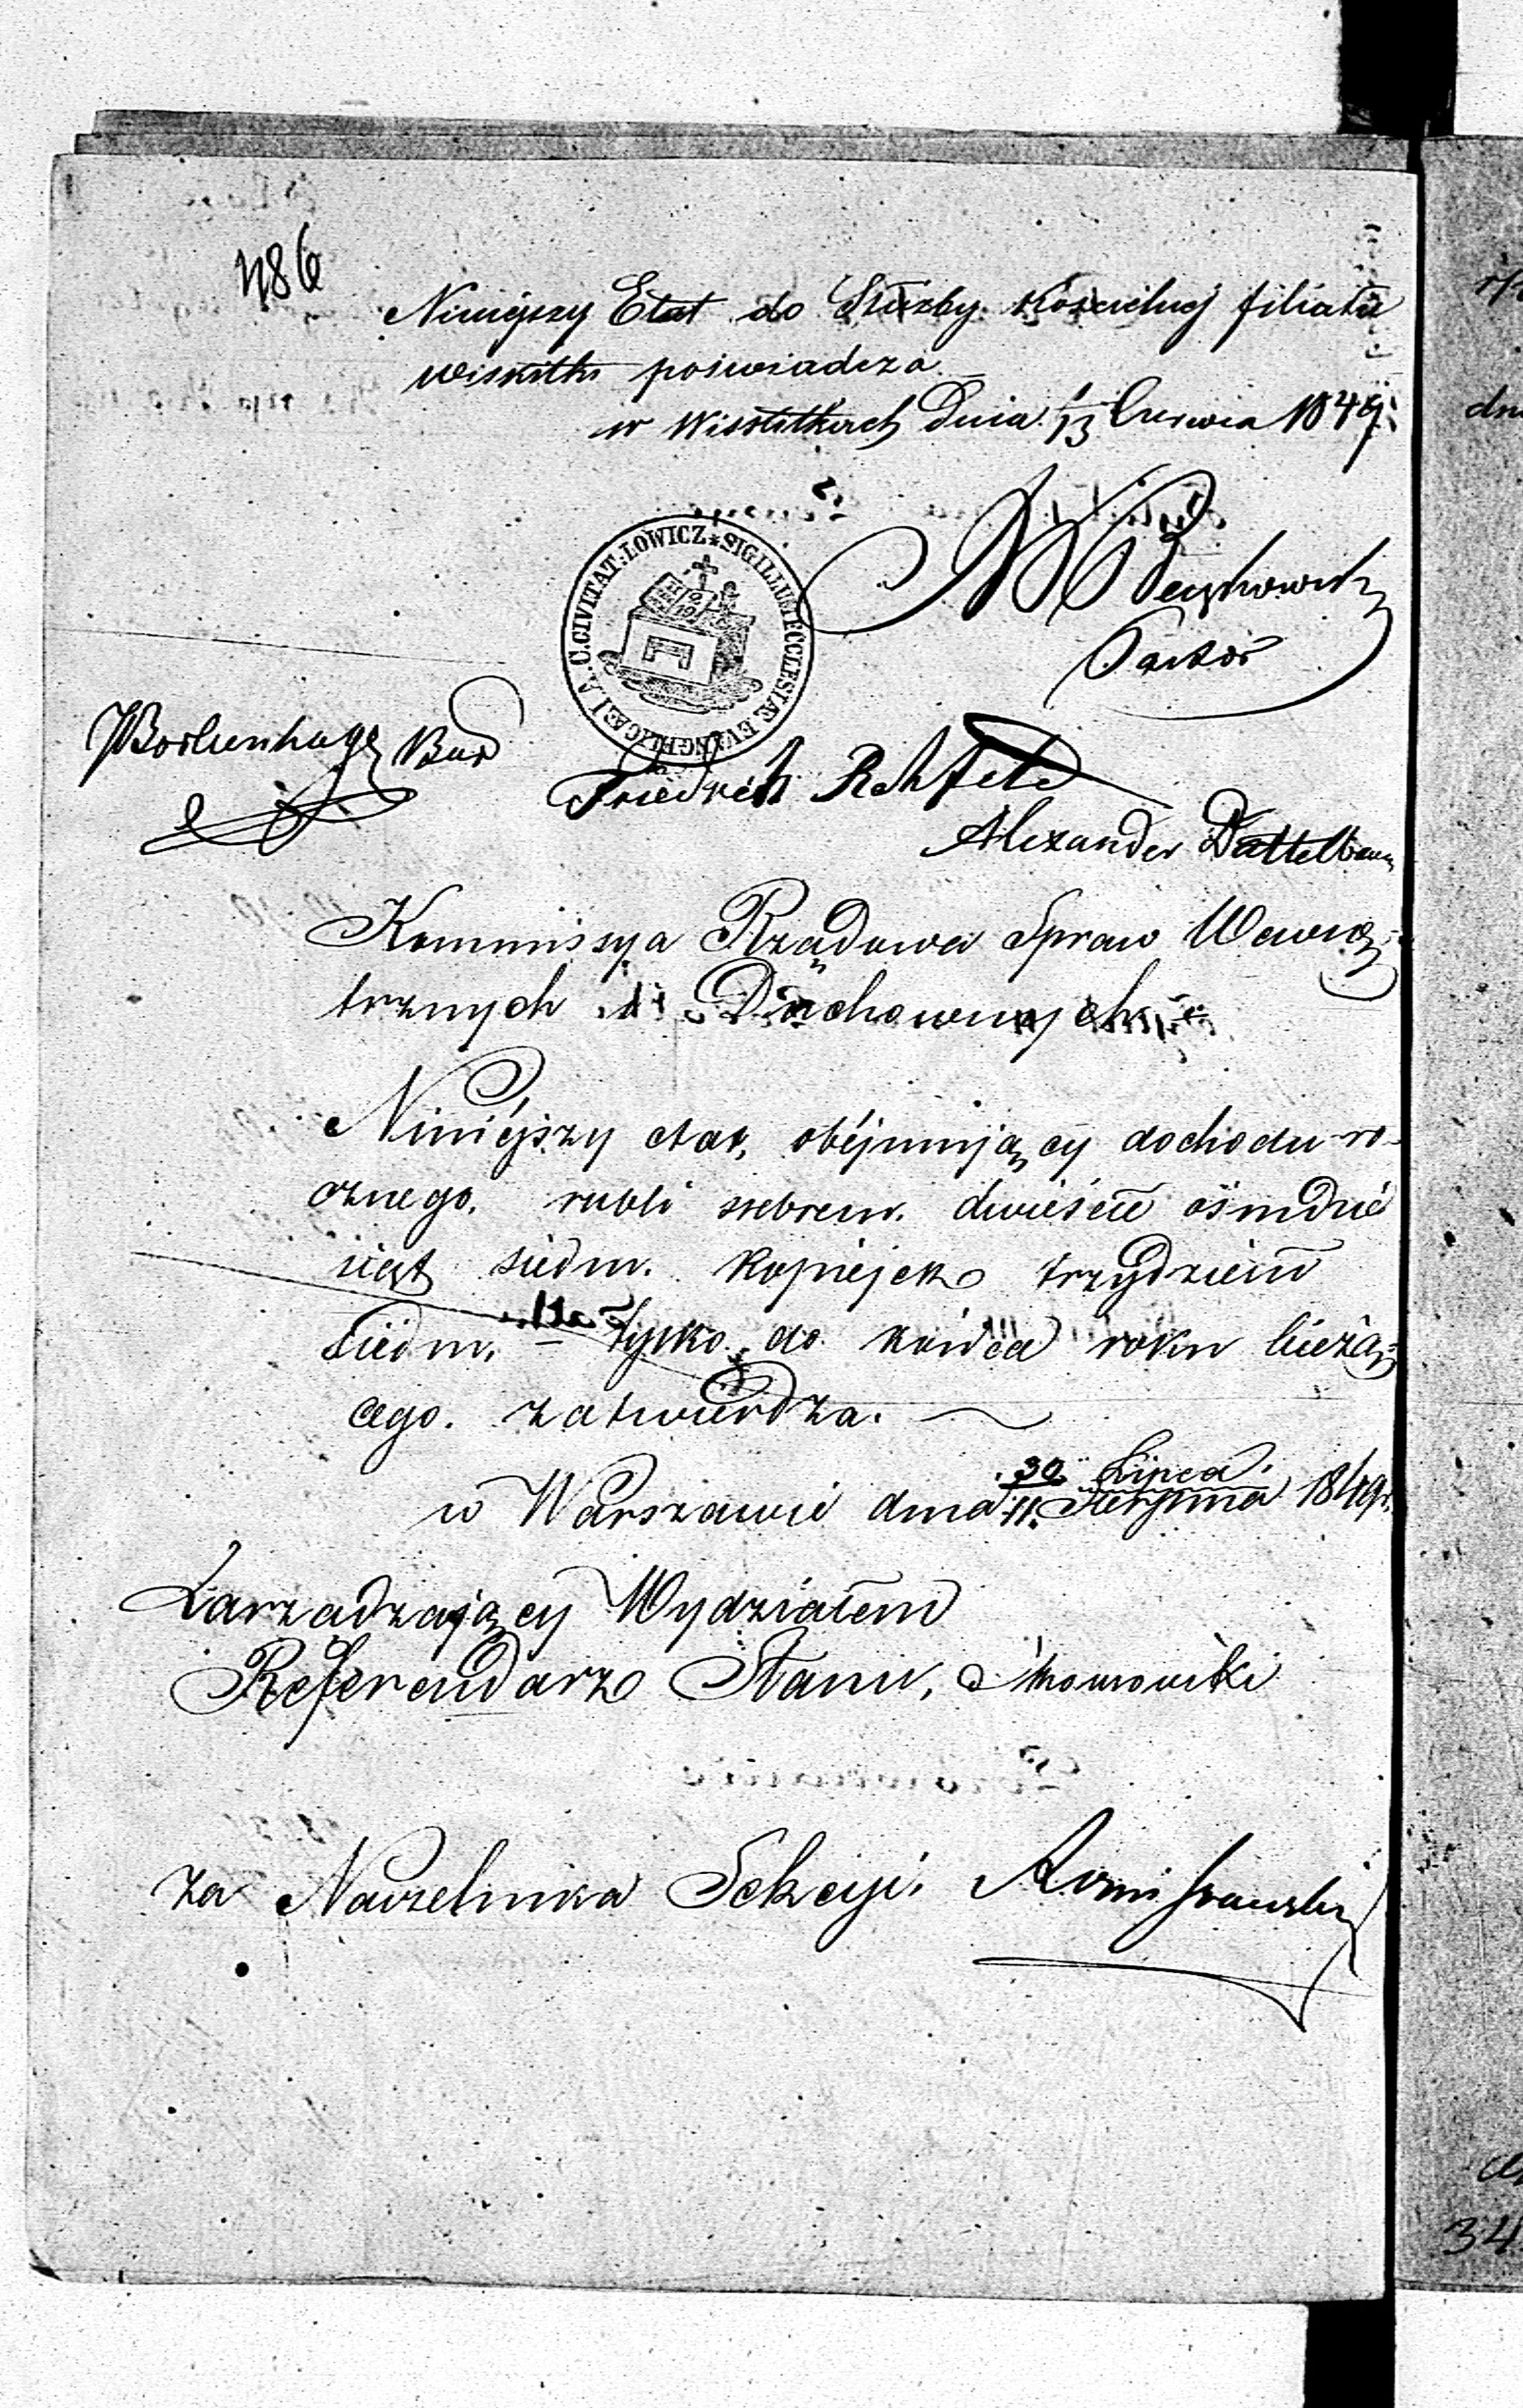 486
Niniejszy Etat do Służby Kościelnej filiału
Wiskitki poświadcza
w Wiskitkach Dnia 1/13 Czerwca 1849.
SIGILLUM ECCLESIÆ EVANGELICÆ I. A. C. CIVITAT. LOWICZ
Pastor
Friedrich Rehfeld
Alexander Dattelbaum
Kommissya Rządowa Spraw Wewnę-
trznych i Duchownych
Niniéjszy etat, obéjmujący dochodu ro-
cznego, rubli srebrem dwieście ośmdzie
siąt siedm. kopiejek trzydzieści
siedm, – tylko do końca roku bieżą-
cego. zatwierdza.
w Warszawie dnia 30 Lipca / 11 Sierpnia 1849 r.
Zarządzający Wydziałem
Referendarz Stanu,
za Naczelnika Sekcyi.